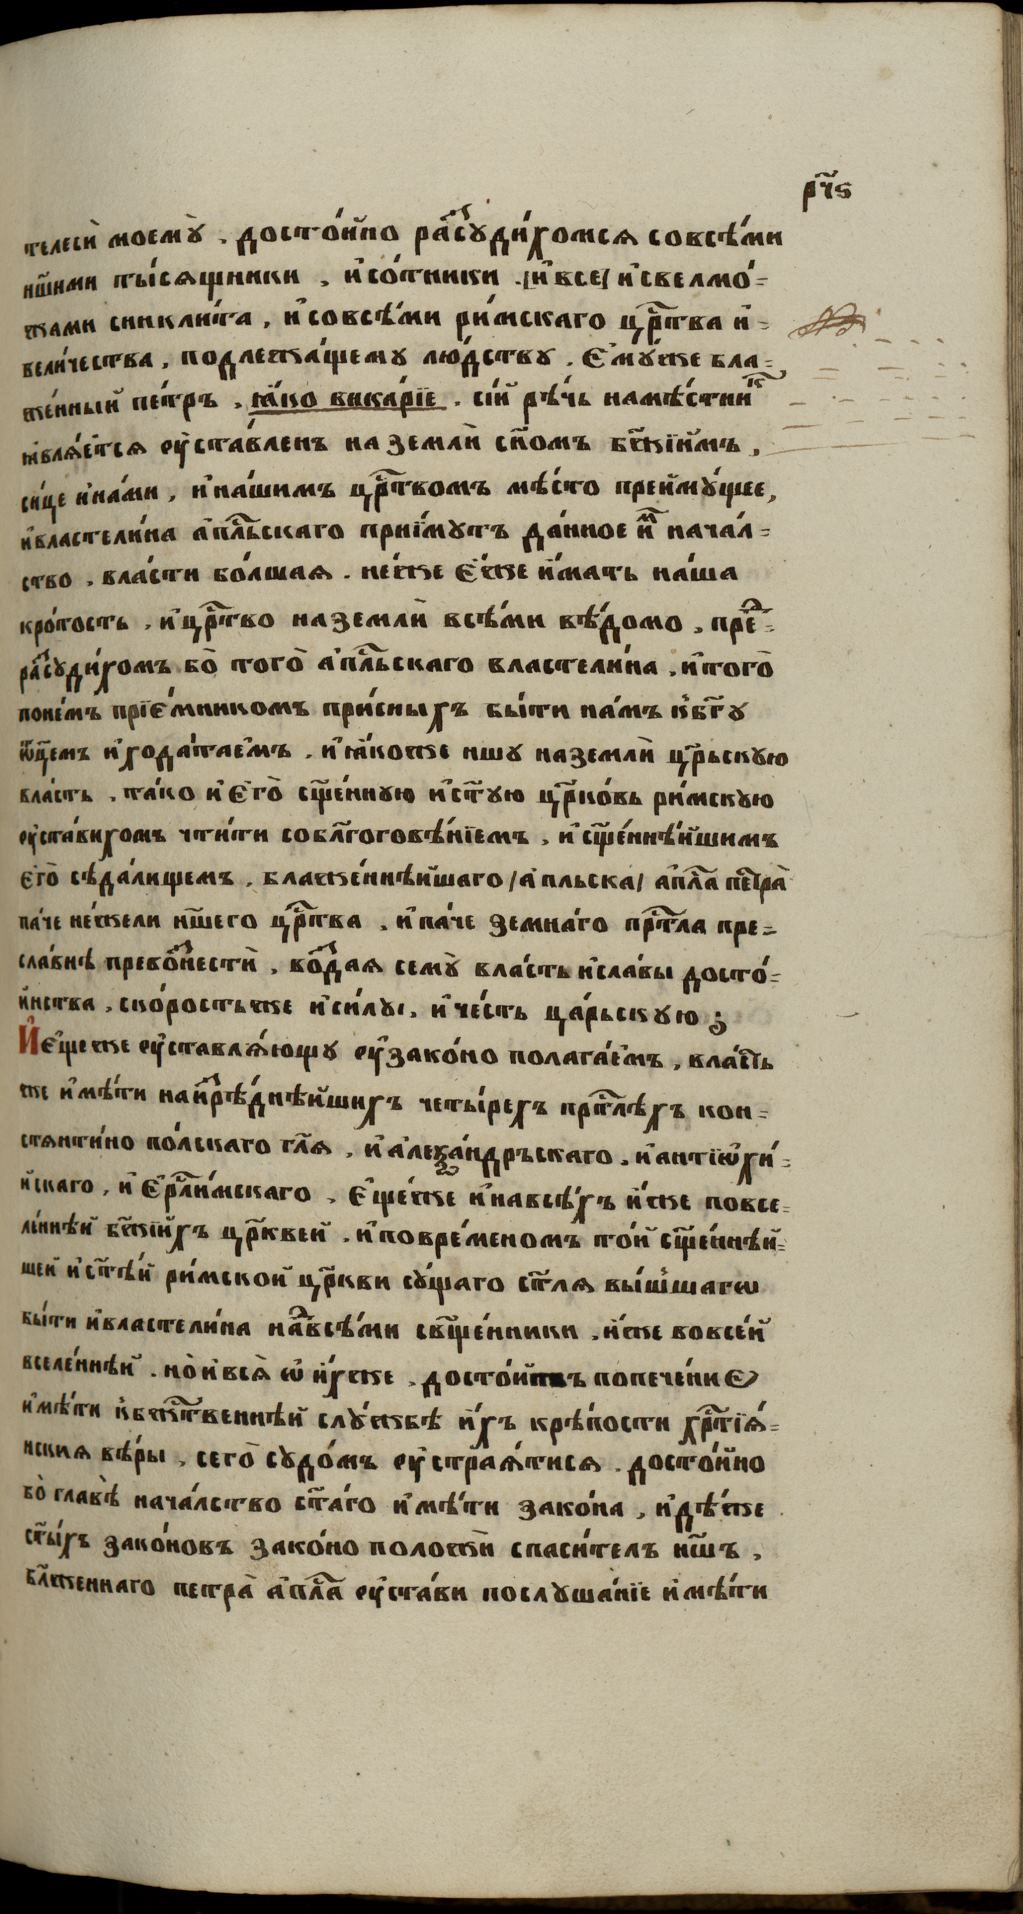 рч҃ѕ
телесѝ моемꙋ̀ . досто́йно раⷥ҇сꙋди́хомсѧ совсѣ́ми
нш҃ими ты́сѧщники , и҆со́тники . и҆все и҆свелмо́=
жами сиикли́та , и҆совсѣ́ми ри́мскаго црⷭ҇тва и҆=
вели́чества , подлежа́щемꙋ лю́дствꙋ . є҆мꙋ́же бла=
же́нный пе́тръ . ꙗ҆́ко вика́рїе . сі́й рѣ́чь намѣ́стниⷦ҇
ꙗ҆влѧ́етсѧ ᲂу҆ста́вленъ на землѝ сн҃омъ бж҃їимъ ,
си́це и҆на́ми , и҆на́шимъ црⷭ҇твомъ мѣ́сто преимꙋ́щее ,
и҆властели́на а҆пⷭ҇льскаго прїи́мꙋтъ да́нное и҆ⷨ начал=
ство . вла́сти бо́лшая . не́же є҆́же и҆́мать на́ша
кро́тость . и҆црⷭ҇тво на землѝ всѣ́ми вѣ́домо . преⷣ=
раⷥсꙋди́хомъ бо̀ того̀ а҆пⷭ҇льскаго властели́на . и҆того̀
поне́мъ прїе́мникомъ при́сныхъ бы́ти на́мъ к̾бг҃ꙋ
ѻ҆ц҃емъ и҆хода́таемъ . и҆ꙗ҆́коже ншꙋ на землѝ цр҃ьскꙋю
вла́сть . та́ко и҆є҆го̀ сщ҃е́ннꙋю и҆ст҃ꙋю цр҃ковь ри́мскꙋю
ᲂу҆ста́вихомъ чти́ти собл҃гоговѣ́нїемъ , и҆сщ҃е́ннѣйшимъ
є҆го̀ сѣда́лищемъ . блаже́ннѣйшаго /а҆пльска/ а҆пⷭ҇ла петра̀
па́че не́жели нш҃его црⷭ҇тва . и҆па́че земна́го прⷭ҇тла пре=
сла́внѣ превоⷥнестѝ . воⷥдая семꙋ̀ вла́сть и҆сла́вы досто́=
и҆нства . ско́ростьже и҆си́лꙋ , и҆че́сть ца́рьскꙋю ;
И҆є҆щеже ᲂу҆ставлѧ́ющꙋ ᲂу҆зако́но полага́емъ , вла́сть
же и҆мѣ́ти наиⷫ҇рѣ́днѣйшихъ четы́рехъ прⷭ҇тлѣхъ кон=
стѧнти́но по́лскаго гл҃ѧ , и҆алеѯа́ндръскаго . и҆антїѡхи́=
йскаго , и҆є҆рⷭ҇ли́мскаго . є҆ще́же и҆навсѣ́хъ и҆́же повсе=
ле́ннѣй бж҃їихъ цр҃квей . и҆повре́меномъ то́й сщ҃е́ннѣй=
шей и҆ст҃ѣ́й ри́мской цр҃кви сꙋ́щаго ст҃лѧ вы́шшагѡ
бы́ти и҆властели́на наⷣвсѣ́ми свщ҃е́нники . и҆́же во все́й
вселе́ннѣй . но̀ и҆всѧ̀ ѡ҆ и҆́хже . досто́йнъ попече́ниє
и҆мѣ́ти к̾бжⷭ҇твеннѣй слꙋ́жбѣ и҆́хъ крѣ́пости хрⷭ҇тїѧ́=
нския вѣ́ры . сего̀ сꙋдо́мъ ᲂу҆страѧ́тисѧ . досто́йно
бо̀ главѣ̀ нача́лство ст҃а́го и҆мѣ́ти зако́на , и҆дѣ́же
ст҃ы́хъ зако́новъ зако́но положѝ спаси́телъ нш҃ъ ,
бл҃женнаго петра̀ а҆пⷭ҇ла ᲂу҆ста́ви послꙋша́нїе и҆мѣ́ти